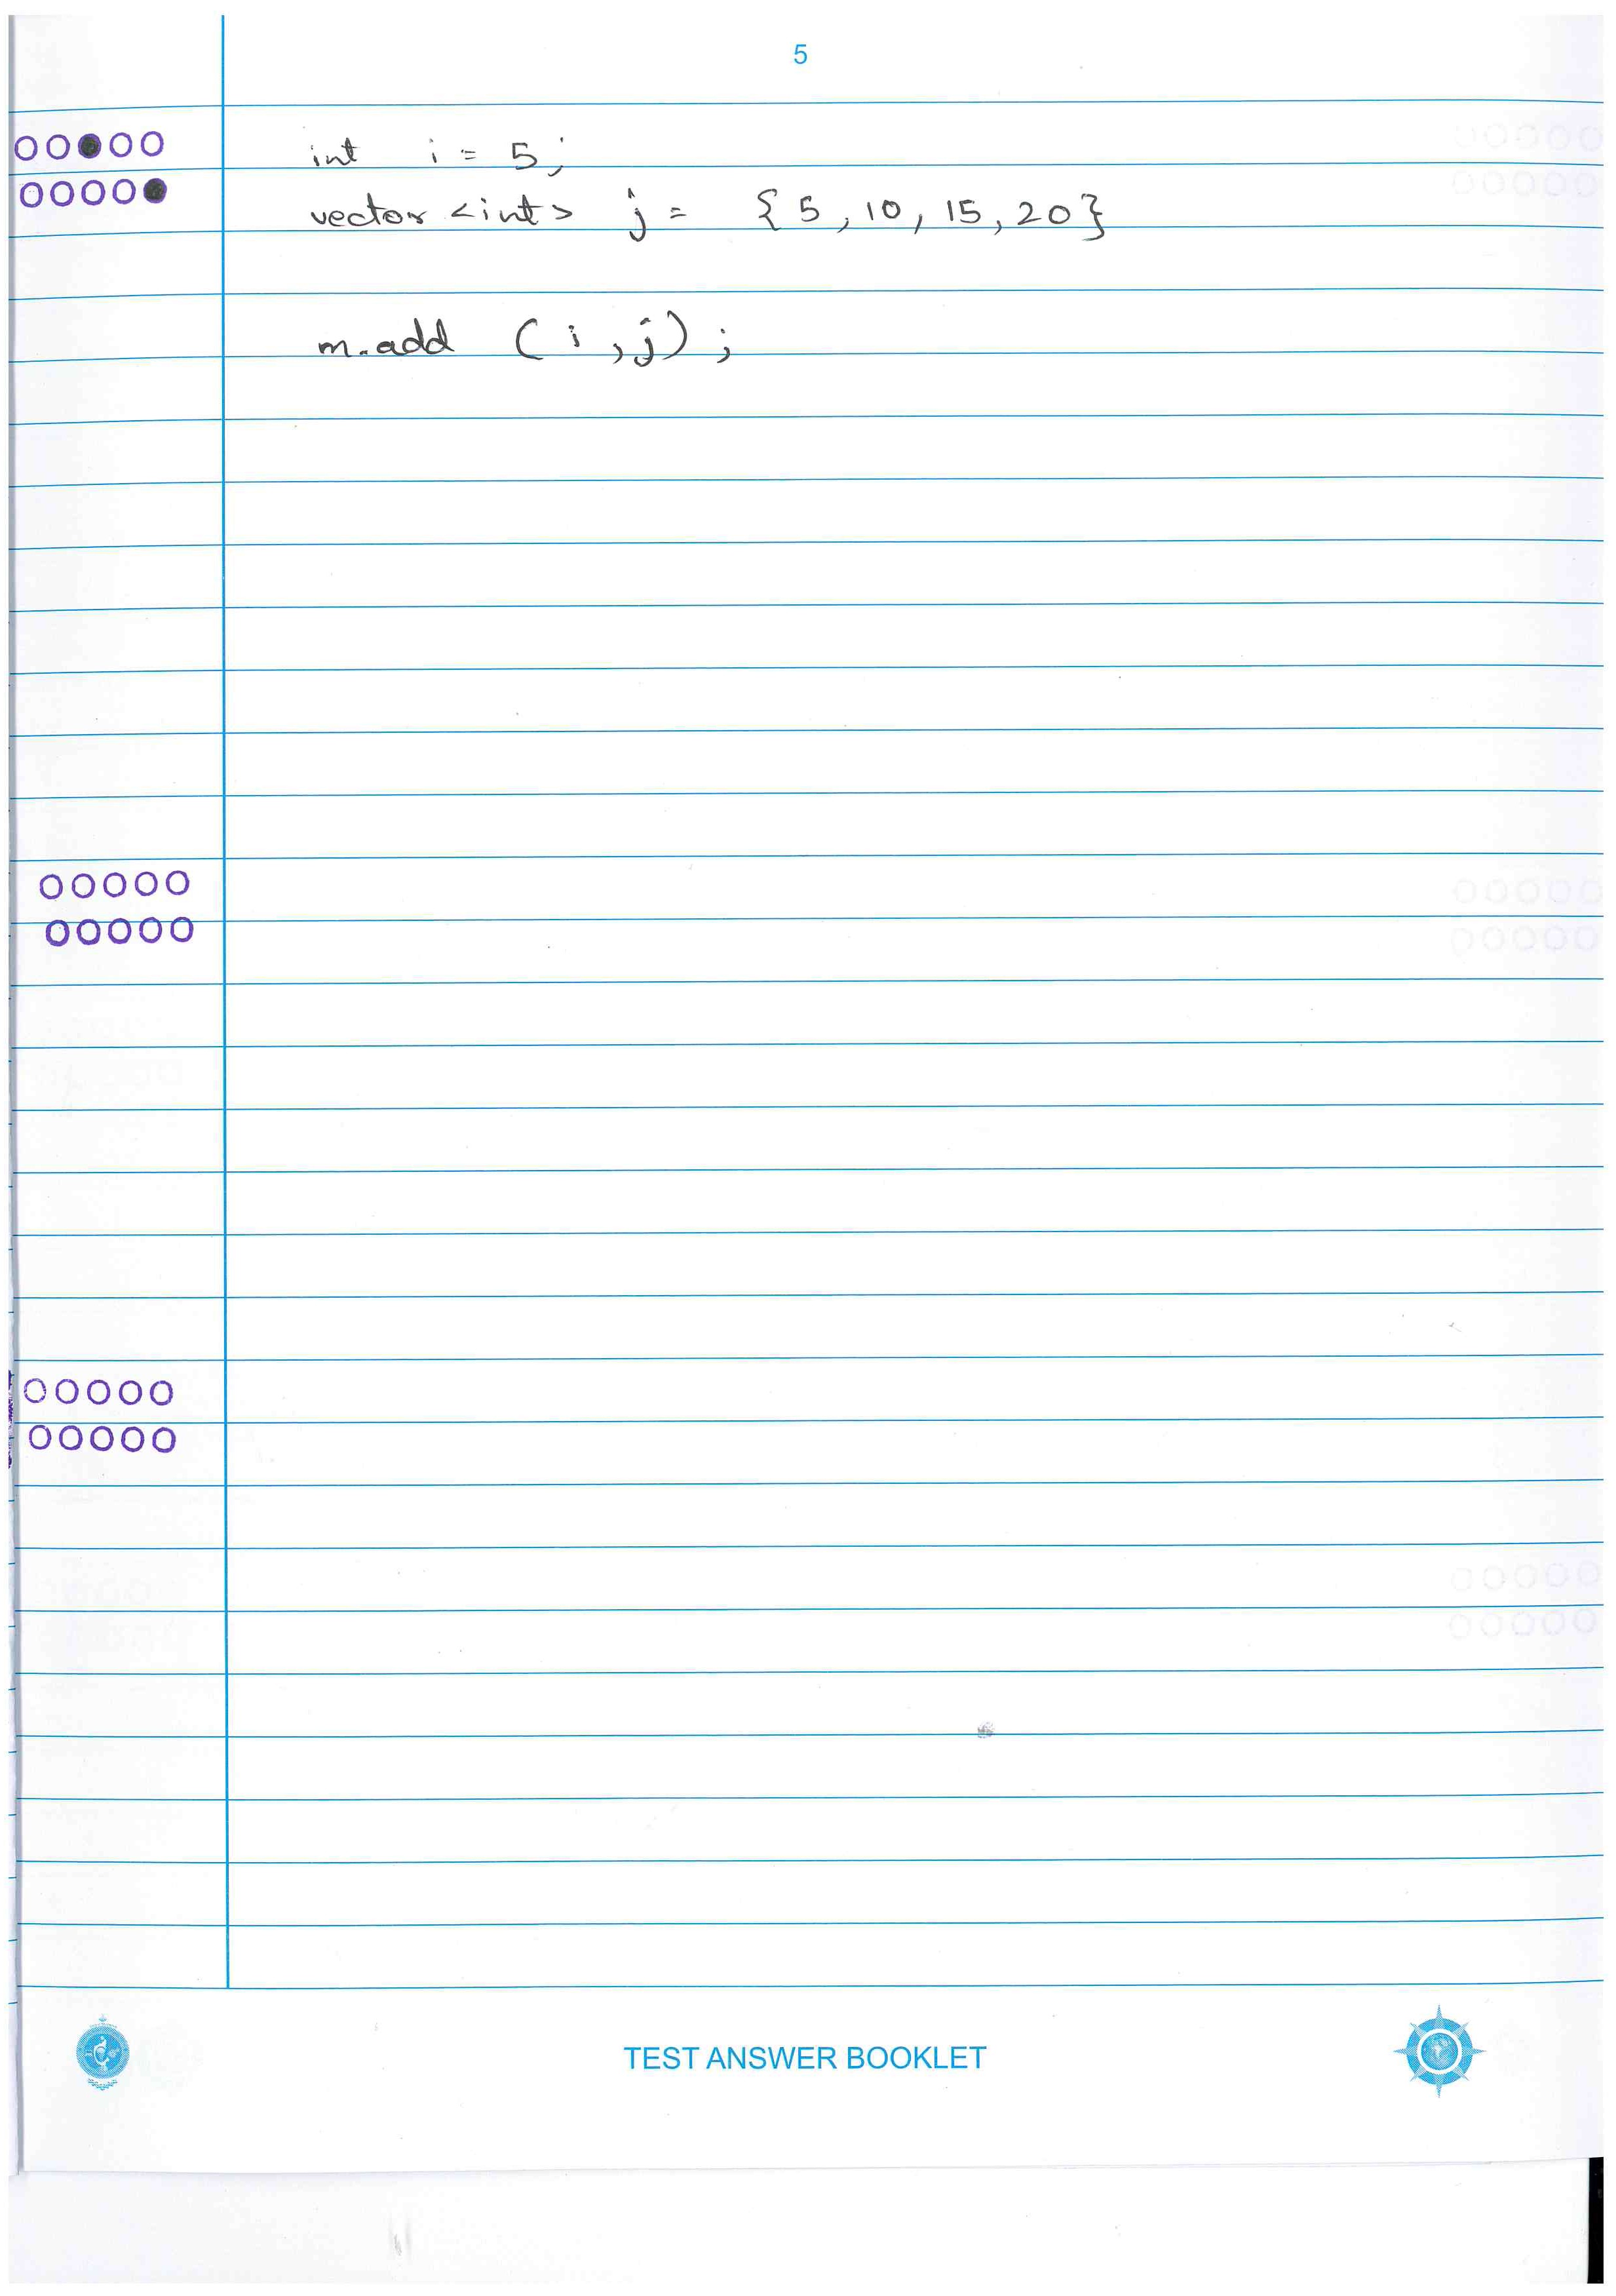 5
int i = 5;
vector <int> j = { 5, 10, 15, 20}
m.add (i, j);
TEST ANSWER BOOKLET